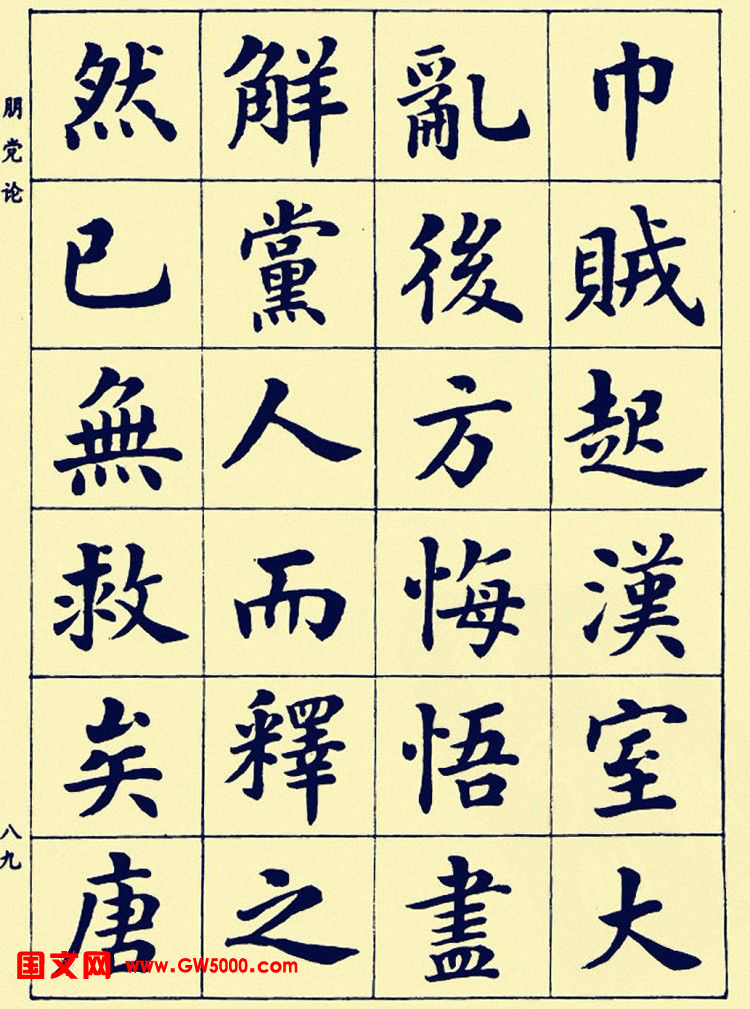 巾賊起漢室大
亂後方悔悟盡
解黨人而釋之
然已無救矣唐
朋党论
八九
国文网 www.GW5000.com